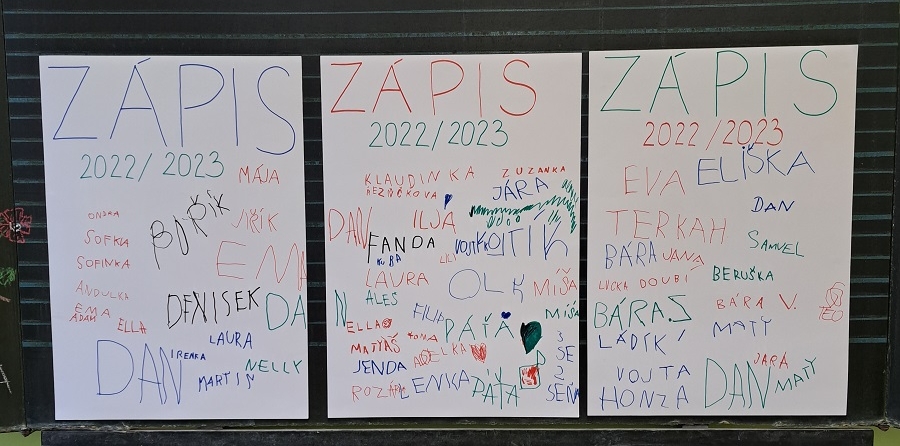 ZÁPIS
2022/2023
MÁJA
ONDRA
BOŘÍK
JIŘÍK
SOFKA
SOFINKA
EMA
ANDULKA
DENISEK
DA
EMA
ADAM
ELLA
LAURA
DAN
IRENKA
NELLY
MARTIN
ZÁPIS
2022/2023
KLAUDINKA
ŘEZNÍČKOVA
ZUZANKA
JÁRA
DAN
ILJA
FANDA
VOJTÍK
OTÍK
KUBA
LILI
LAURA
OLK
MÍŠA
ALES
N
FILIP
MÍŠA
ELLA
PÁŤA
MATYÁŠ
TOMA
ADELKA
JENDA
ROZÁR
LENKA
PÁŤA
ZÁPIS
2022/2023
EVA
ELIŠKA
DAN
TERKAH
SAMUEL
BÁRA
JANA
BERUŠKA
LUCKA DOUBÍ
BÁRA V.
TEO
BÁRA S
MATY
LÁDÍK
JARÁ
VOJTA
DAN
MATY
HONZA